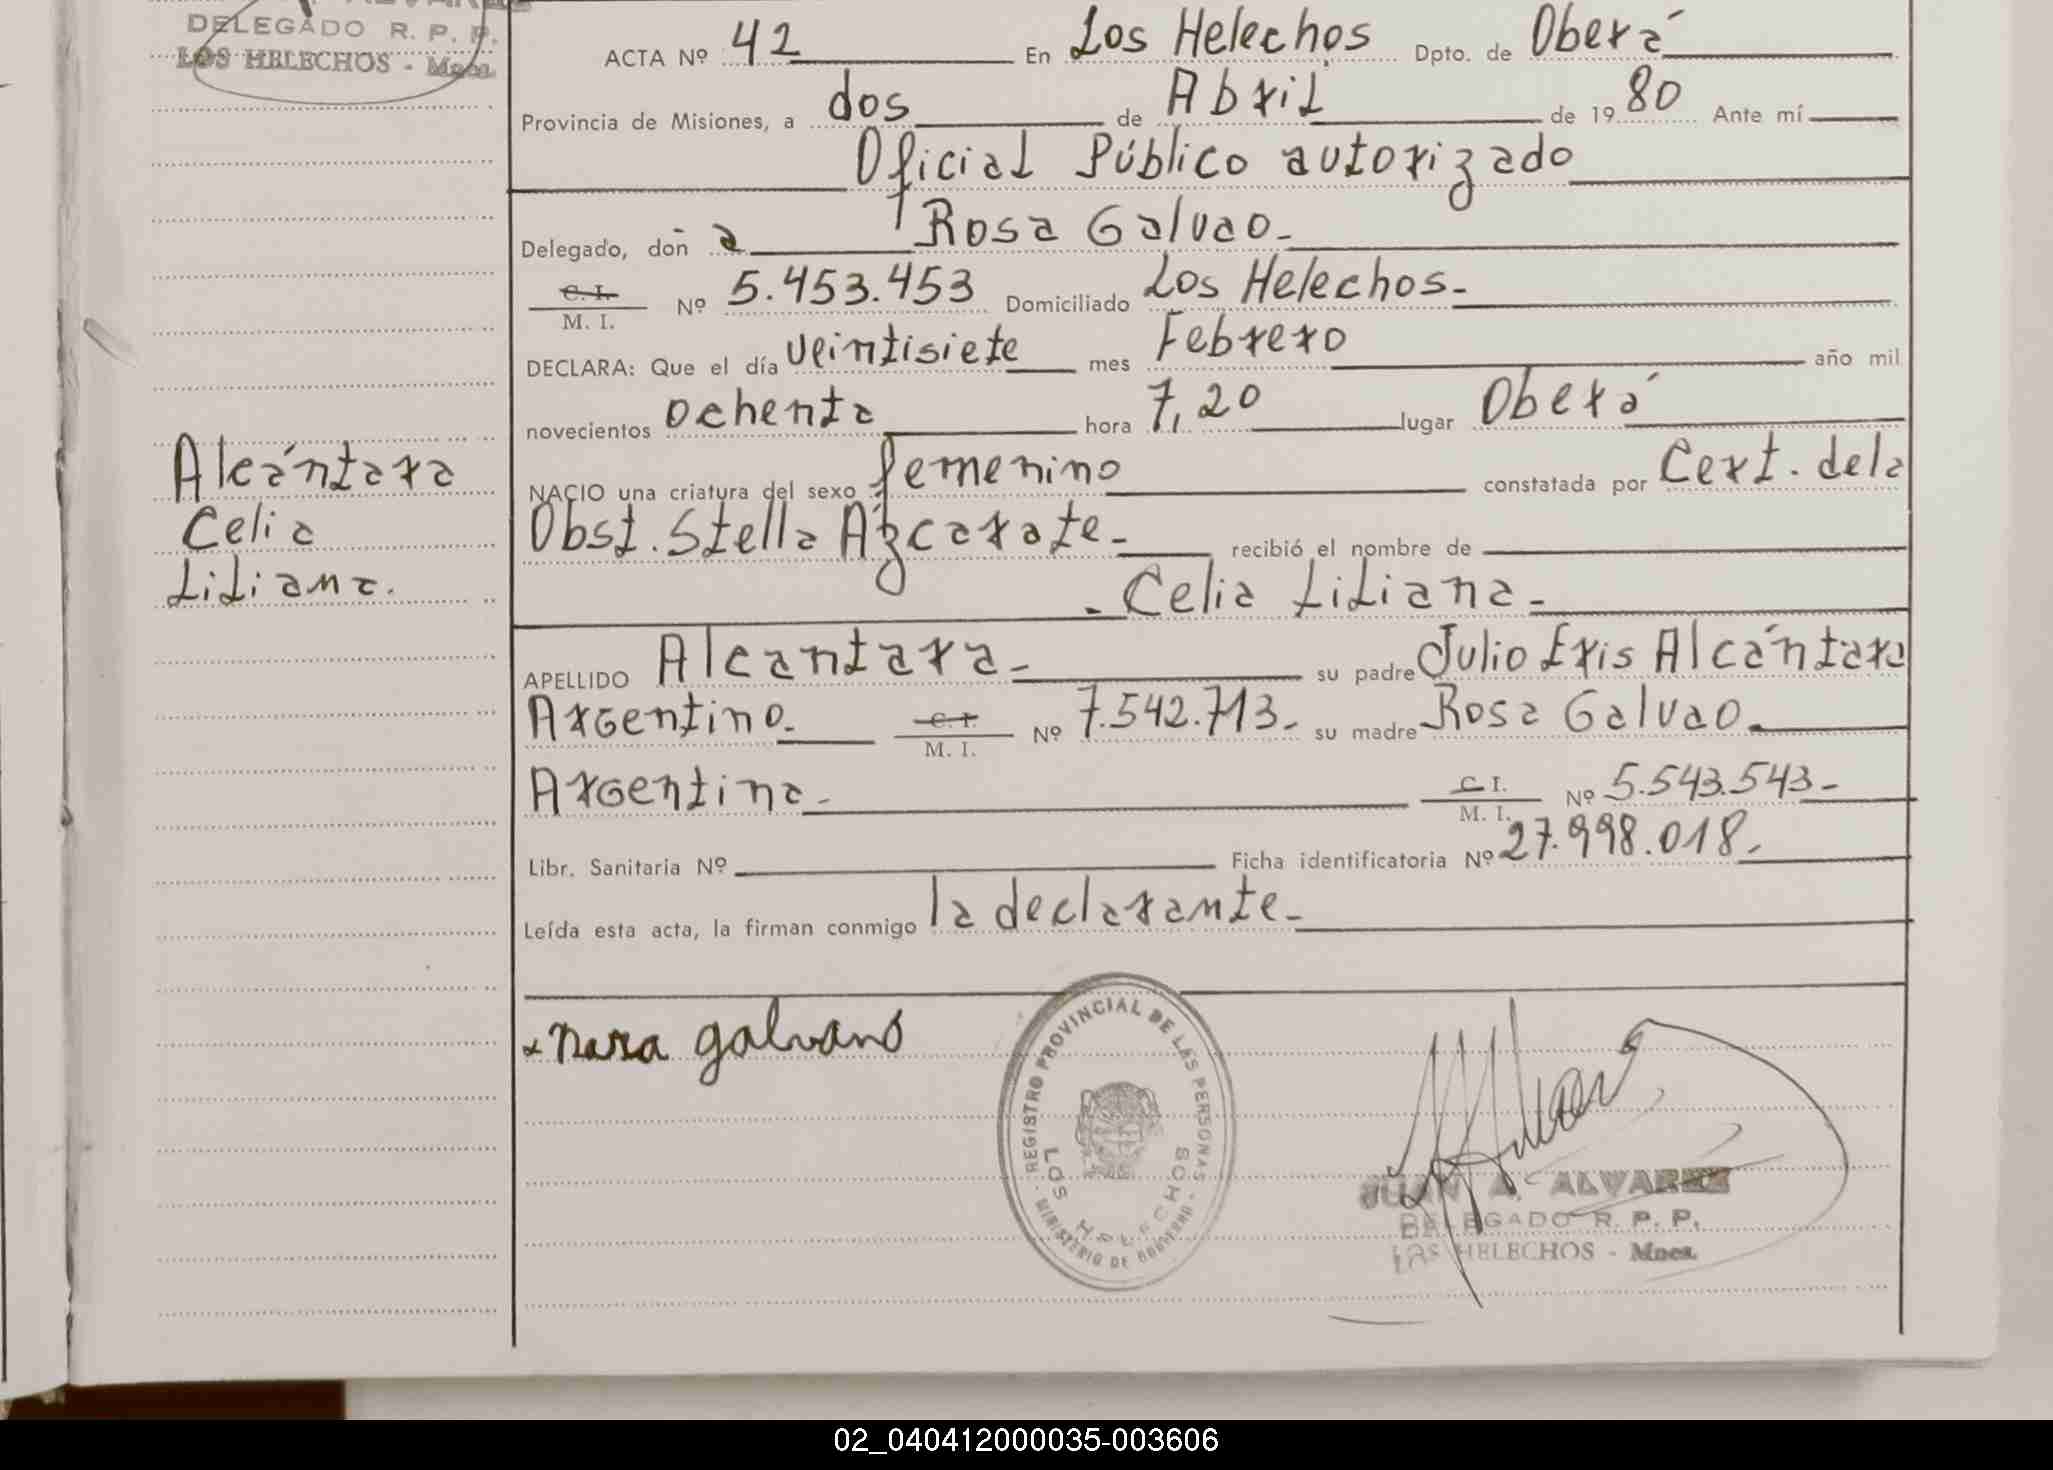 DELEGADO R. P. P.
LOS HELECHOS - Mnes.
ACTA Nº 42 En Los Helechos Dpto. de Oberá
Provincia de Misiones, a dos de Abril de 1980 Ante mí
Oficial Público autorizado
Delegado, don a Rosa Galvao-
C. I.
M. I. Nº 5.453.453 Domiciliado Los Helechos-
DECLARA: Que el día veintisiete mes Febrero año mil
novecientos ochenta hora 7,20 lugar Oberá
NACIO una criatura del sexo femenino constatada por Cert. de la
Obst. Stella Azcarate- recibió el nombre de
- Celia Liliana-
Alcántara
Celia
Liliana.
APELLIDO Alcantara- su padre Julio Eris Alcántara
Argentino- C. I.
M. I. Nº 7.542.713- su madre Rosa Galvao-
Argentina- C. I.
M. I. Nº 5.543.543-
Libr. Sanitaria Nº Ficha identificatoria Nº 27.998.018-
Leída esta acta, la firman conmigo la declarante-
galvano
REGISTRO PROVINCIAL DE LAS PERSONAS
MINISTERIO DE GOBIERNO
LOS HELECHOS
JUAN A. ALVAREZ
DELEGADO R. P. P.
LOS HELECHOS - Mnes.
02_040412000035-003606